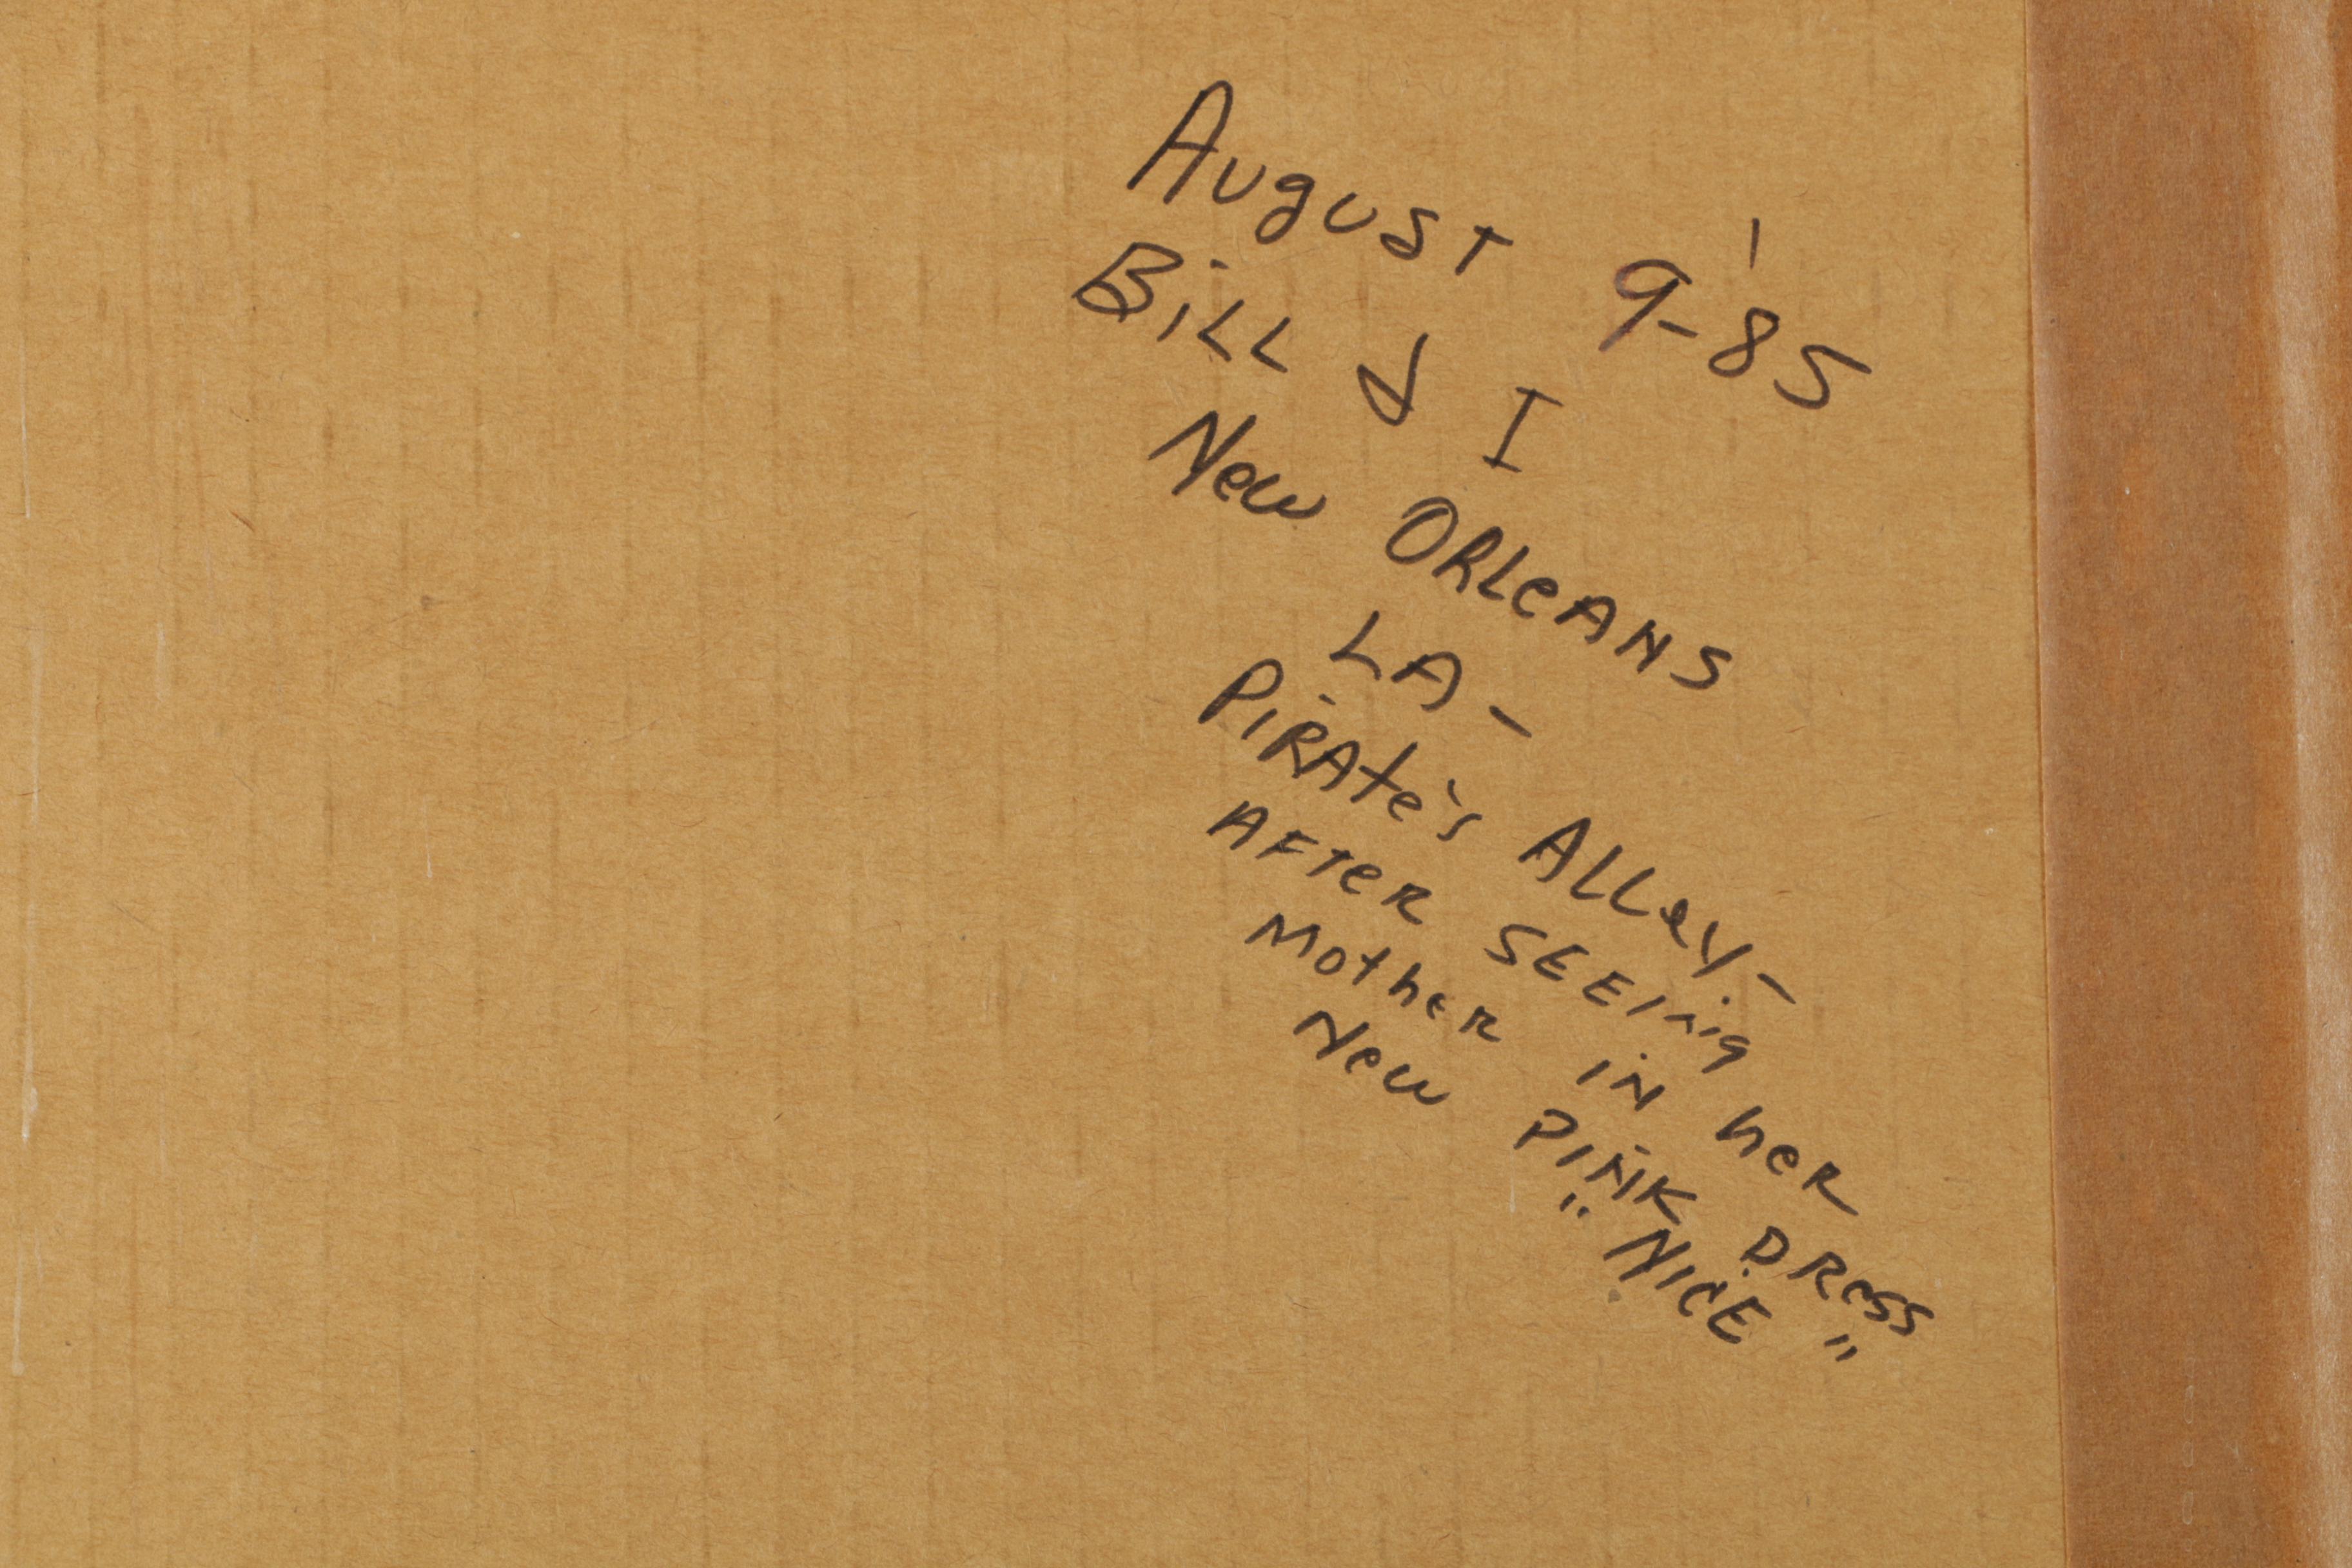 August 9-'85
Bill & I
New ORLeANS
LA-
PiRAte's ALLey-
AFTeR SEEing
MotheR iN heR
New PiNK DRess
"NiCE"